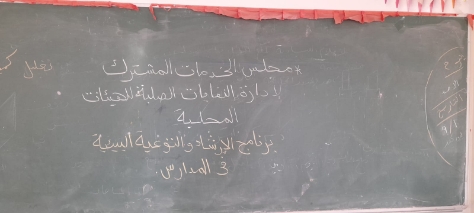 * مجلس الخدمات المشترك
لإدارة النفايات الصلبة للهيئات
المحلية
برنامج الإرشاد والتوعية البيئية
في المدارس.